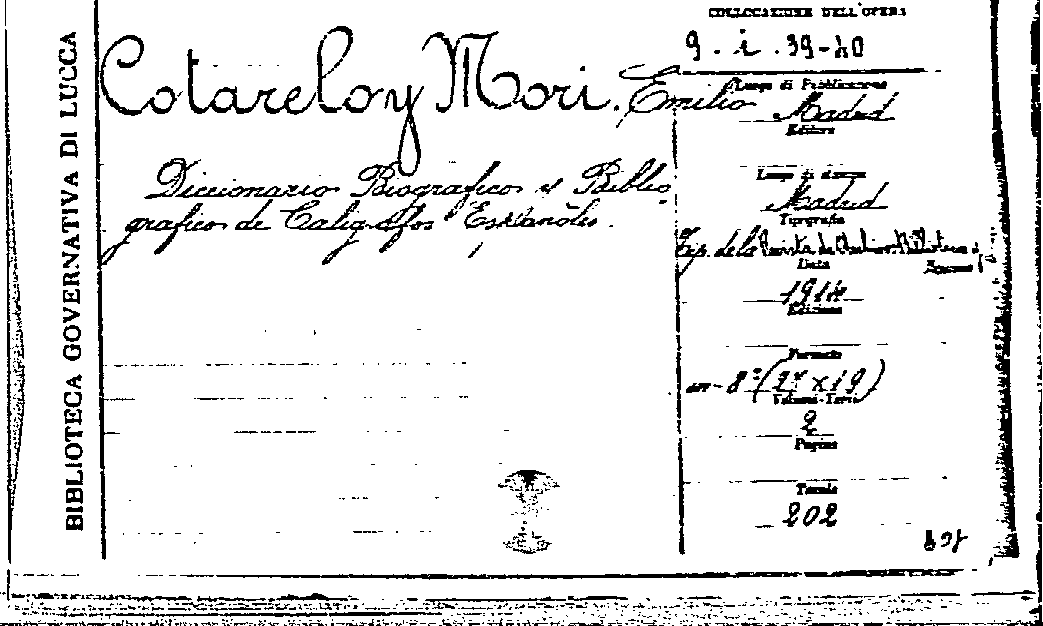 BIBLIOTECA GOVERNATIVA DI LUCCA
Cotarelo y Mori. Emilio
Diccionario Biografico y Biblio
grafico de Caligrafos Españoles.
COLLOCAZIONE DELL'OPERA
9. i. 39-40
Luogo di Pubblicazione
Madrid
Editore
Luogo di stampa
Madrid
Tipografia
Tip. de la Revista de Archivos Biblioteca y
Data
1914
Edizione
Formato
in-8° ( x 19)
2
Pagine
Tavole
202